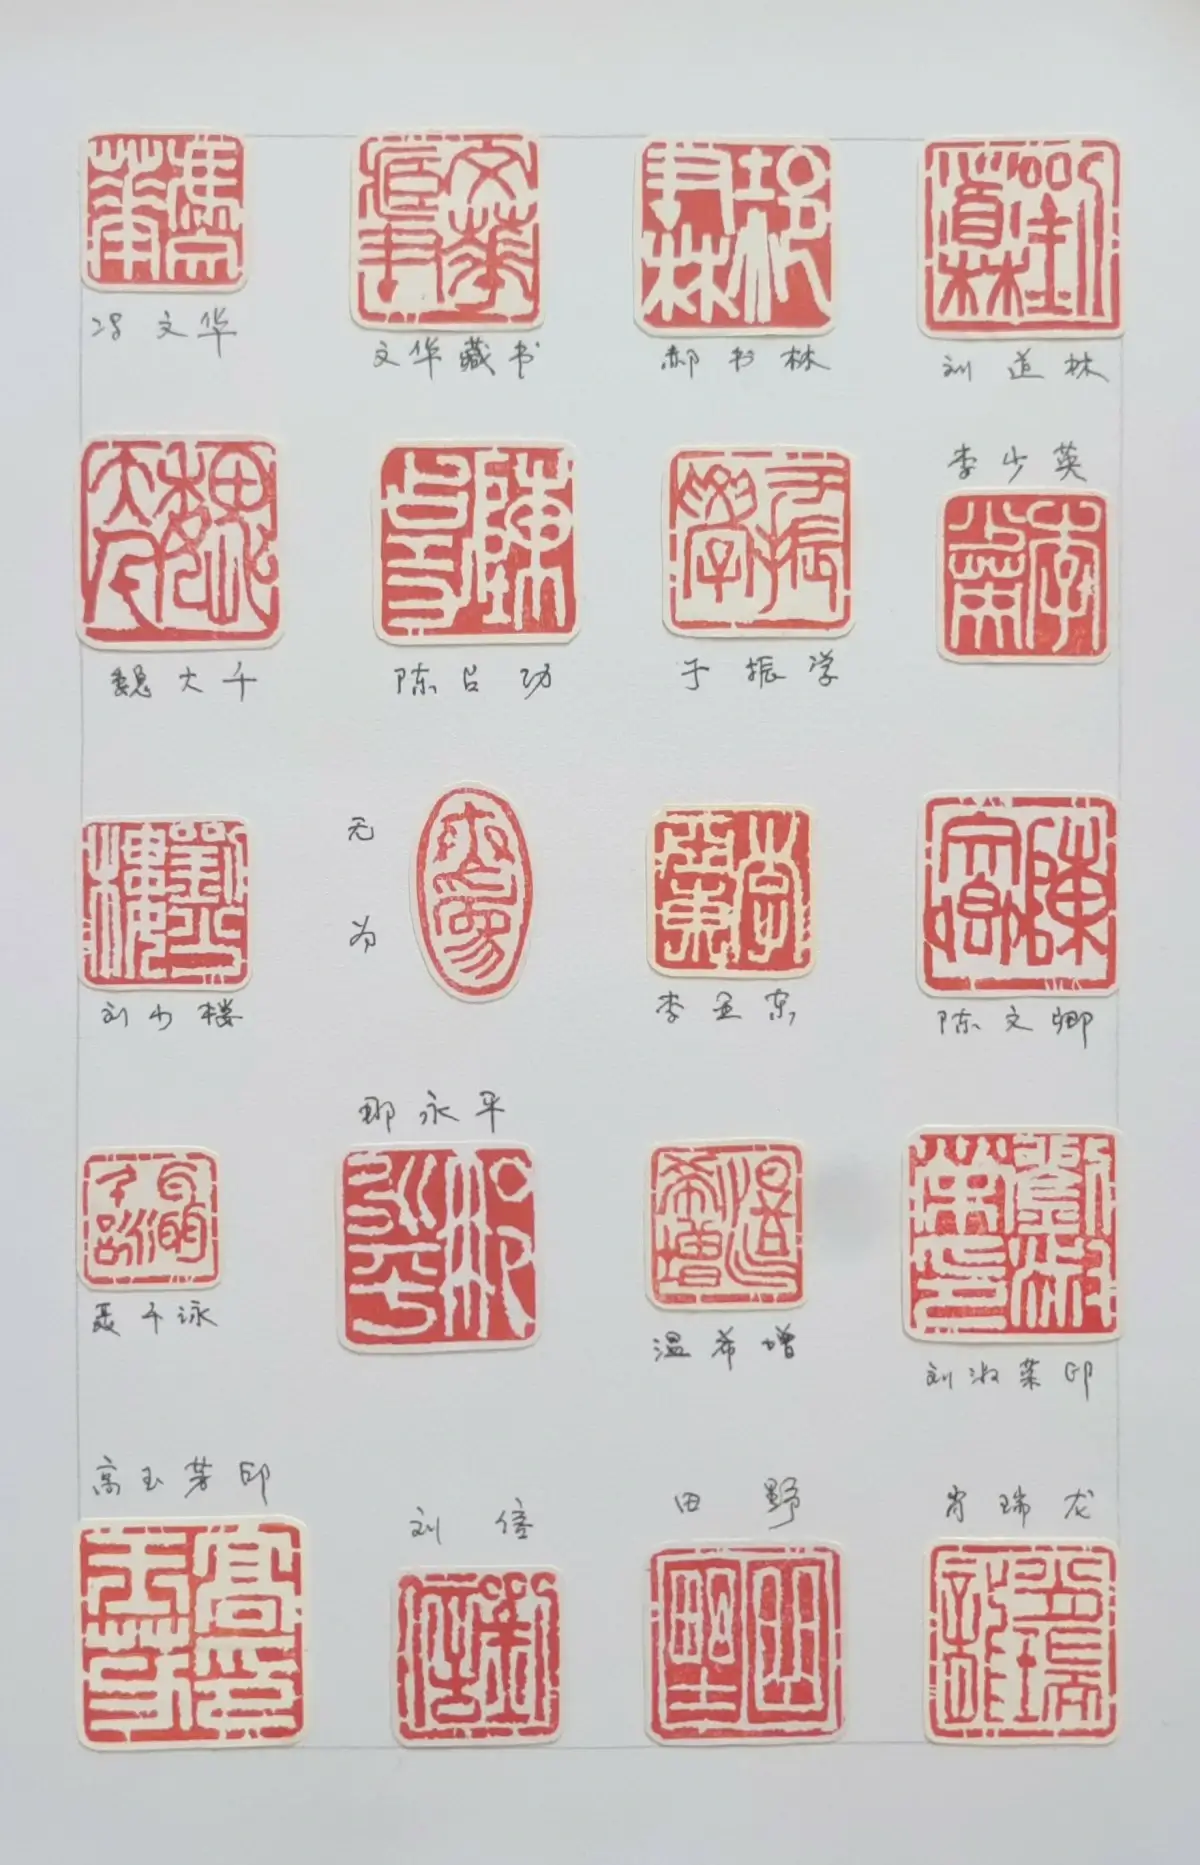 冯文华
文华藏书
郝书林
刘道林
魏大千
陈吕功
于振学
李少英
刘少楼
无为
李亚东
陈文卿
聂千泳
邢永平
温希增
刘淑荣印
高玉芳印
刘信
田野
肖瑞龙